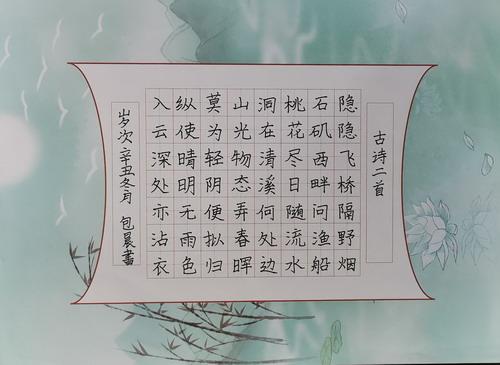 古诗二首
隐隐飞桥隔野烟
石矶西畔问渔船
桃花尽日随流水
洞在清溪何处边
山光物态弄春晖
莫为轻阴便拟归
纵使晴明无雨色
入云深处亦沾衣
岁次辛丑冬月 包晨書